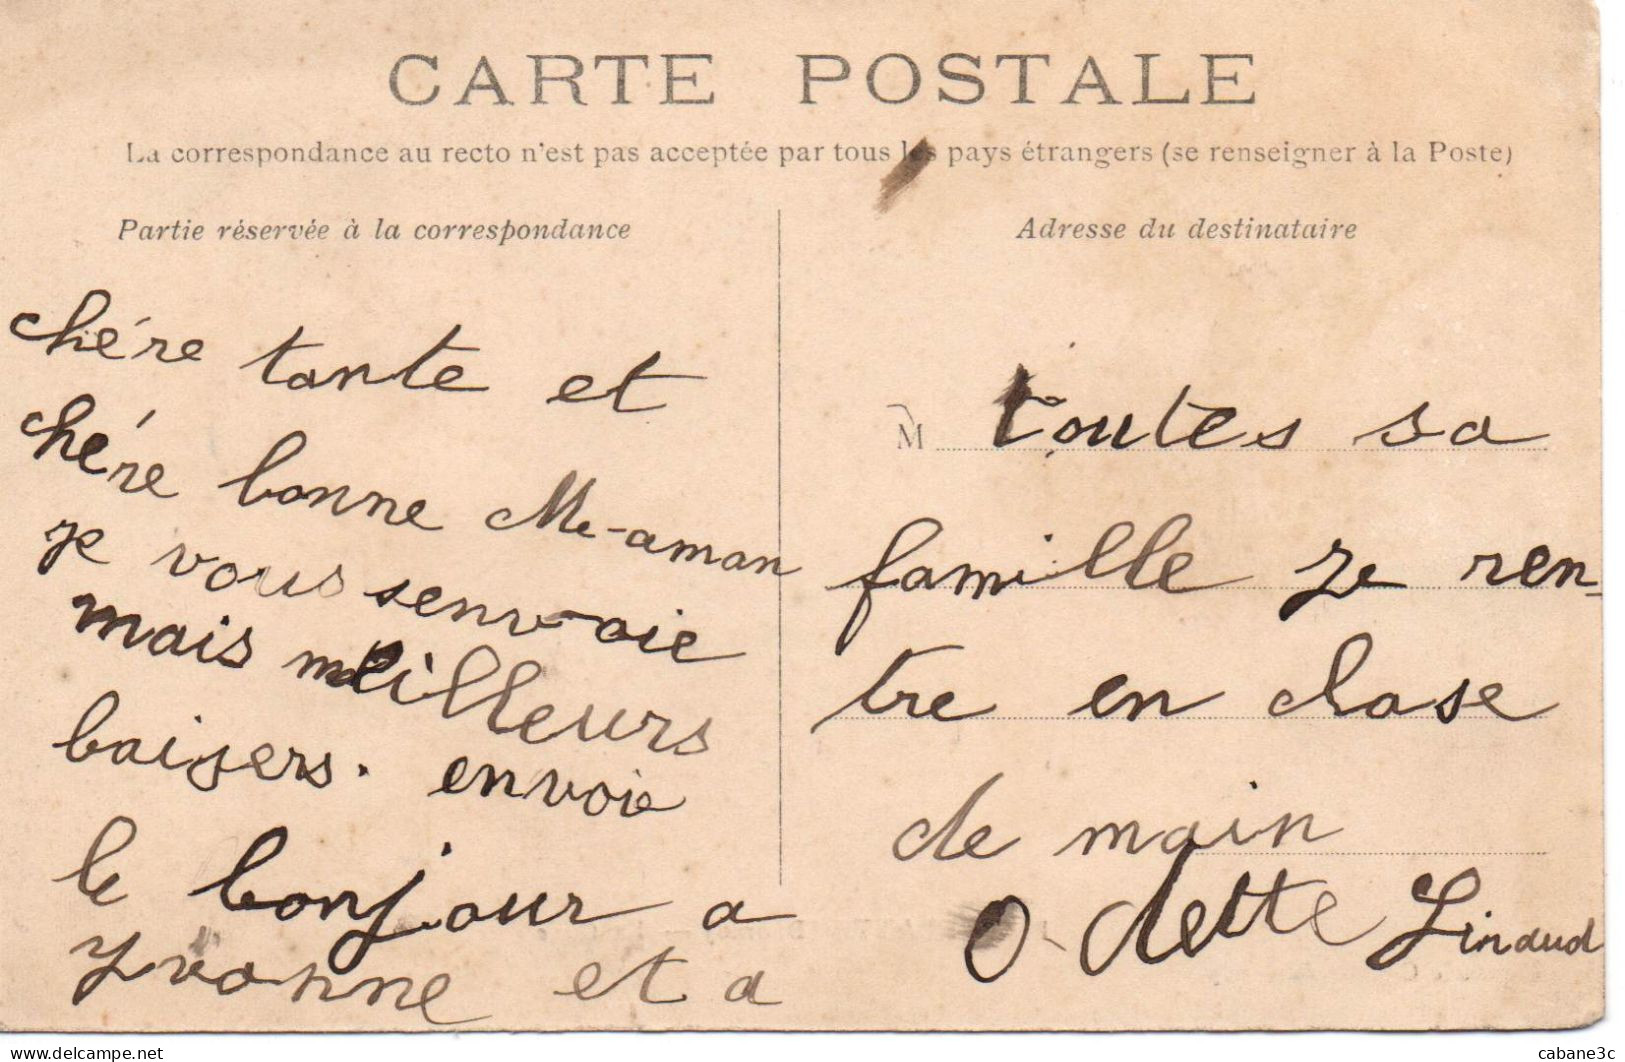 CARTE POSTALE
La correspondance au recto n'est pas acceptée par tous les pays étrangers (se renseigner à la Poste)
Partie réservée à la correspondance
chére tante et
chére bonne Me-aman
je vous senvoie
mais meilleurs
baisers. envoie
le bonjour a
Yvonne et a
Adresse du destinataire
M toutes sa
famille je ren-
tre en clase
de main
O-dette Linaud
cabane3c